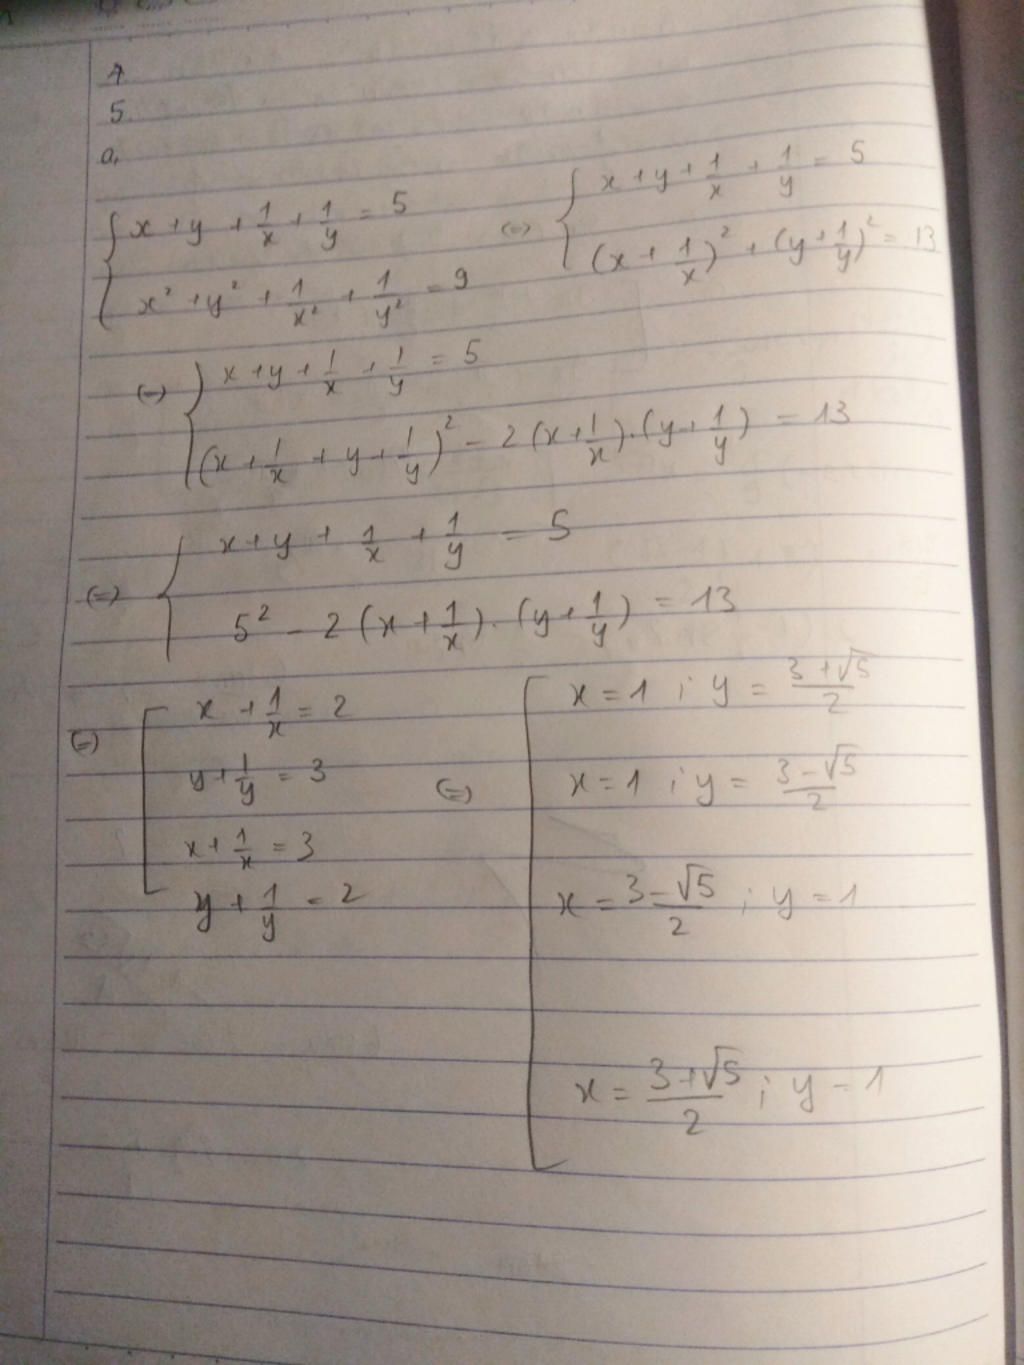 A
5
a,
{ x + y + 1/x + 1/y = 5 (=) { x + y + 1/x + 1/y = 5
{ x² + y² + 1/x² + 1/y² = 9 { (x + 1/x)² + (y + 1/y)² = 13
(=) { x + y + 1/x + 1/y = 5
{ (x + 1/x + y + 1/y)² - 2 (x + 1/x).(y + 1/y) = 13
(=) { x + y + 1/x + 1/y = 5
{ 5² - 2 (x + 1/x).(y + 1/y) = 13
(=) [ x + 1/x = 2
y + 1/y = 3
x + 1/x = 3
y + 1/y = 2
(=) [ x = 1 ; y = (3 + √5)/2
x = 1 ; y = (3 - √5)/2
x = (3 - √5)/2 ; y = 1
x = (3 + √5)/2 ; y = 1